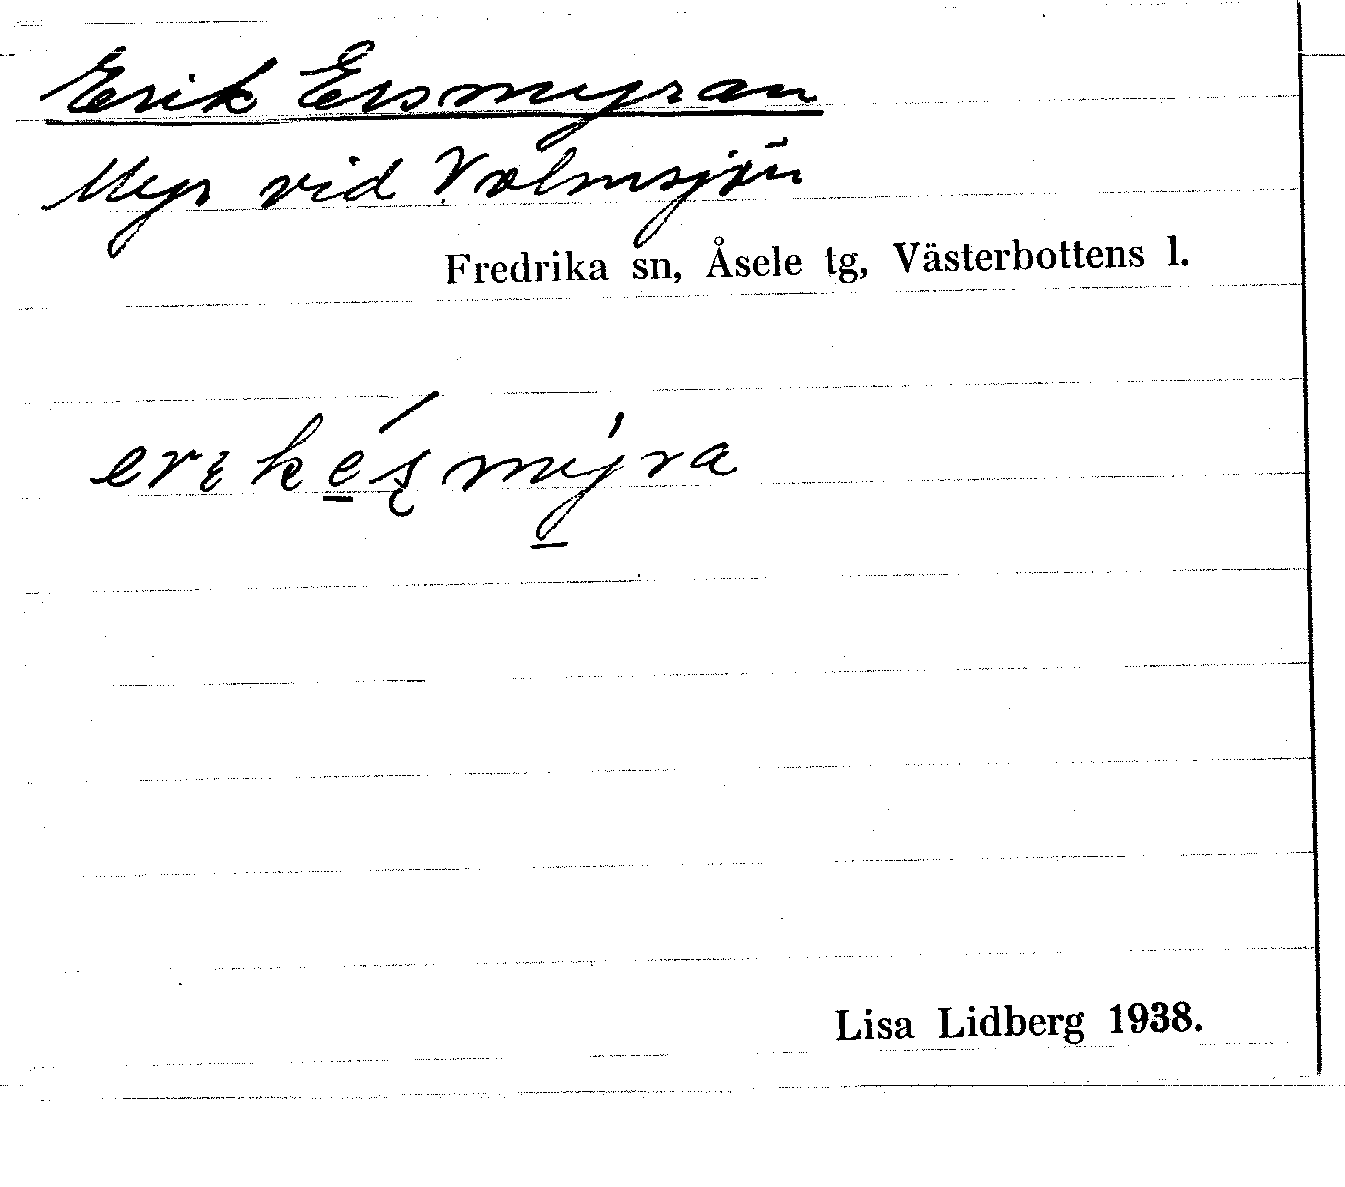 Erik Ersmyran
Myr vid Volmsjön
Fredrika sn, Åsele tg, Västerbottens l.
Lisa Lidberg 1938.